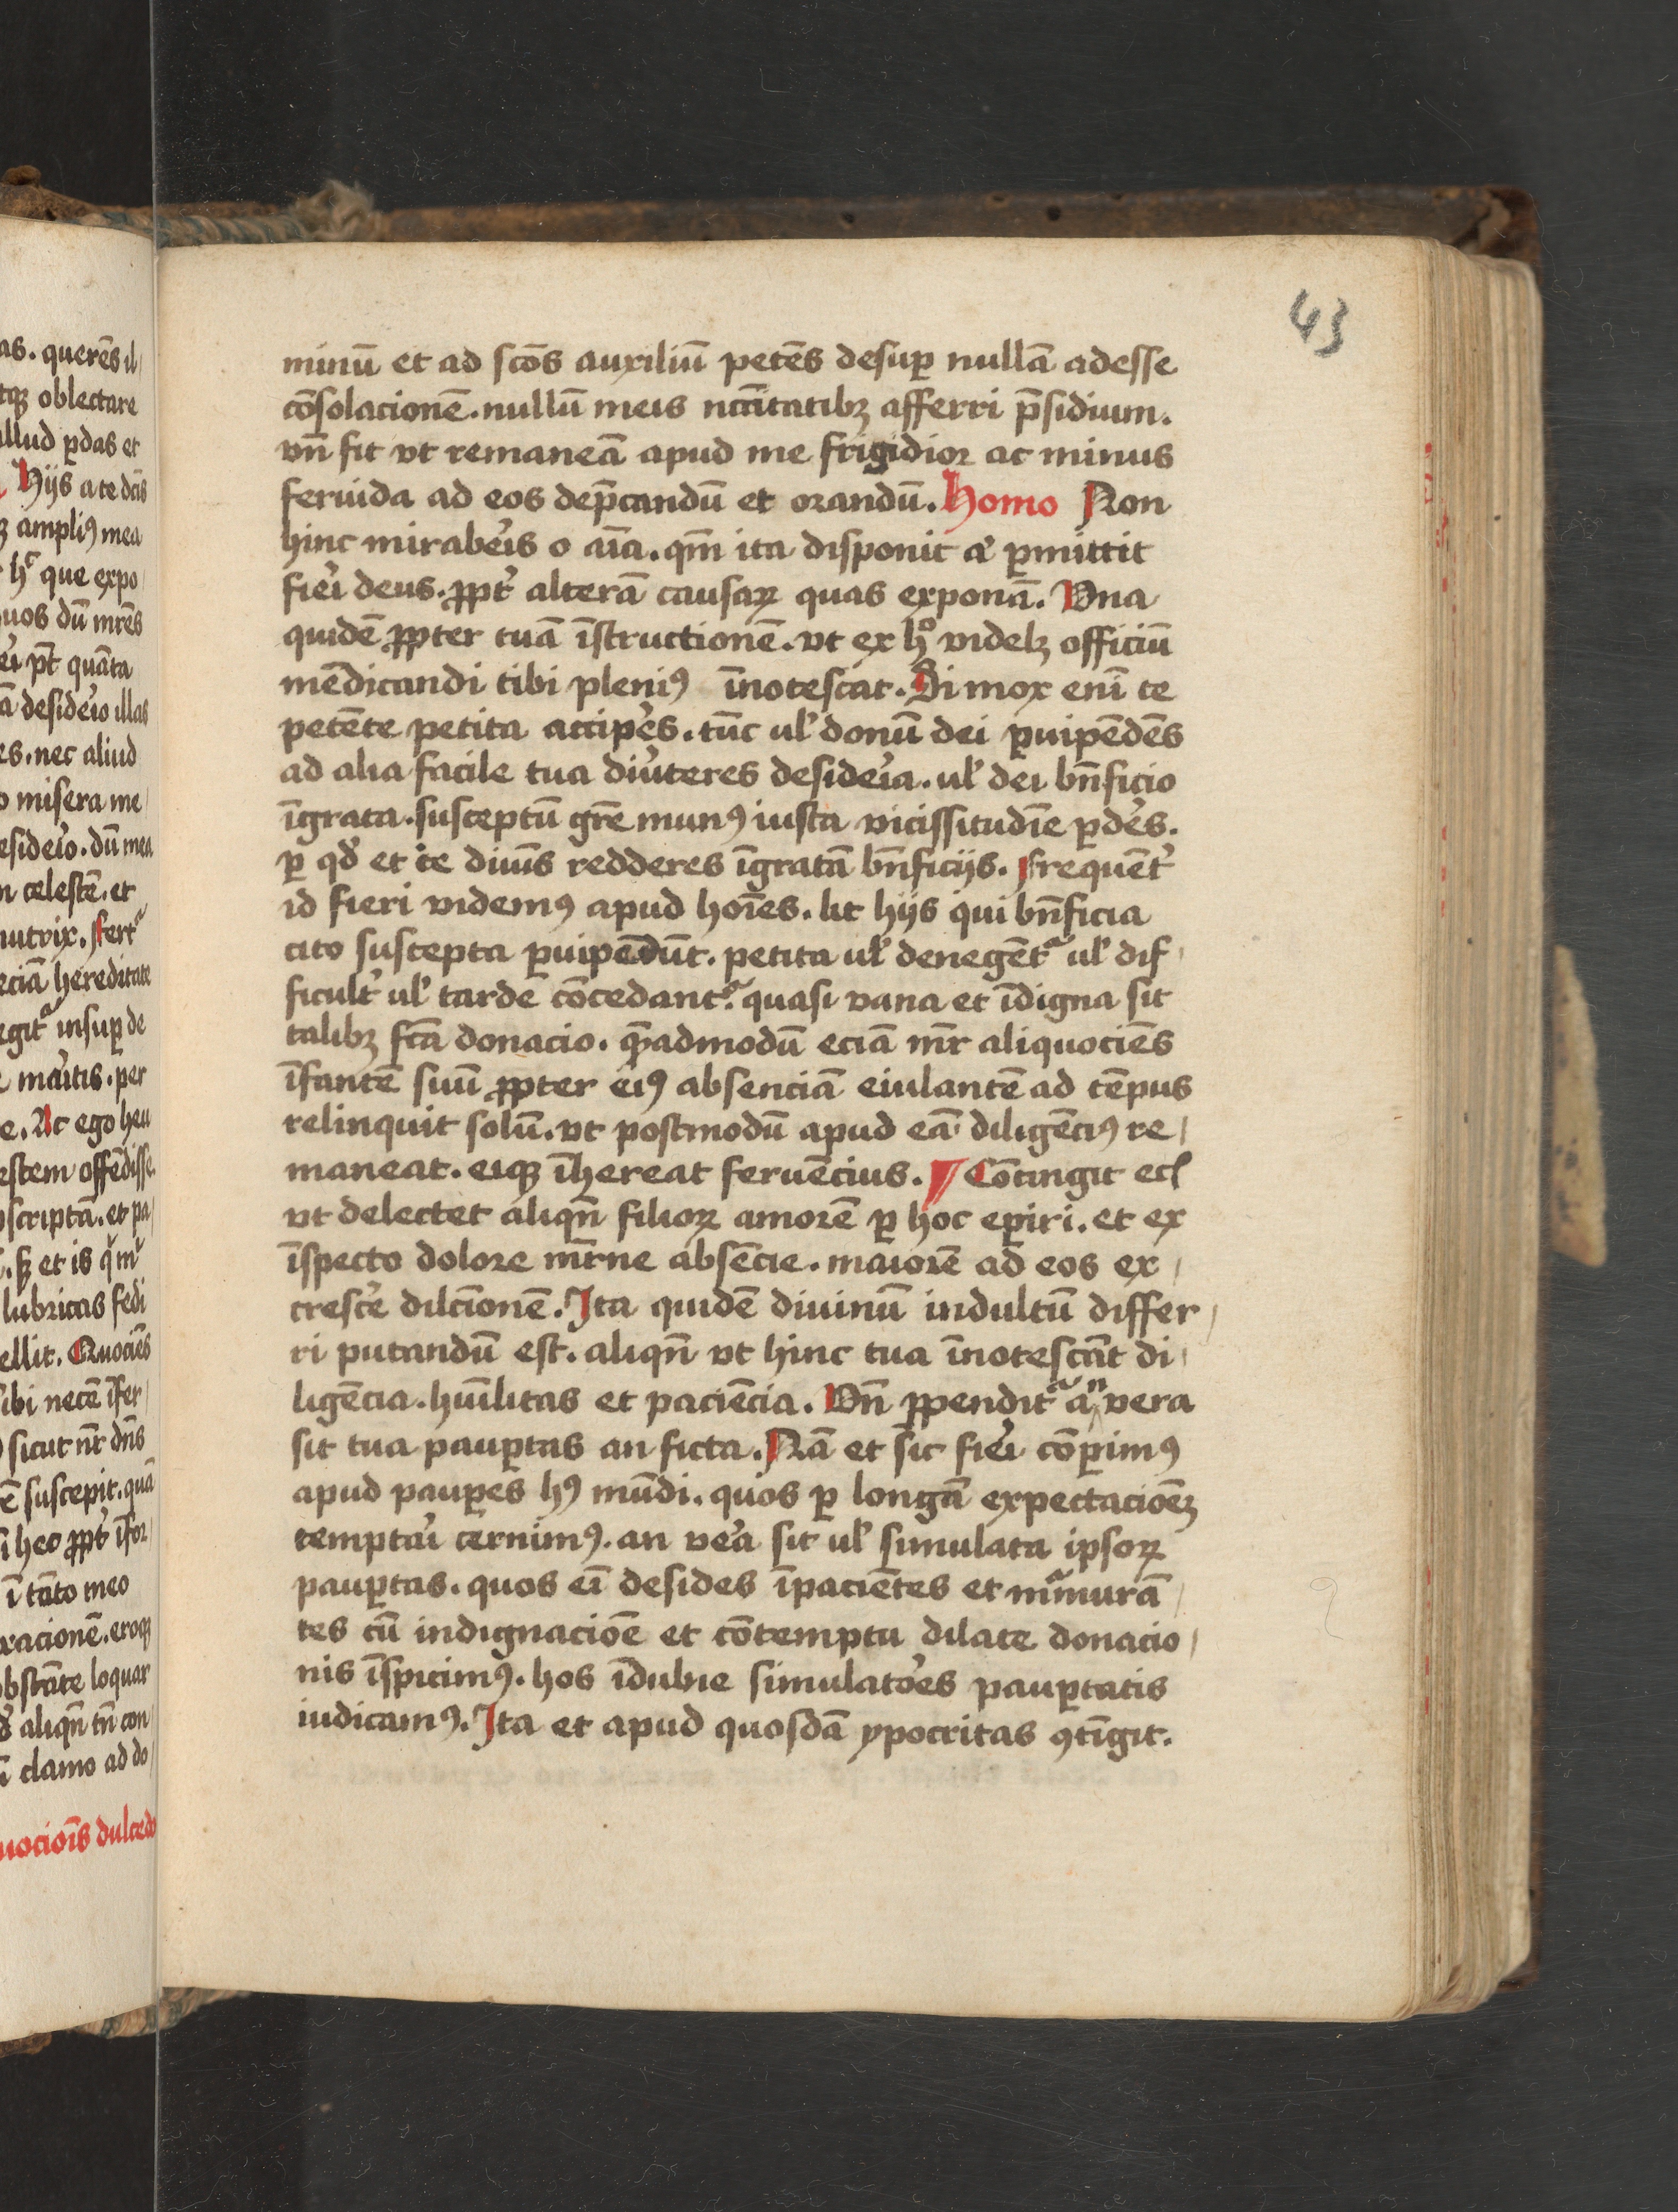 43
minū et ad scōs auxiliū petēs desuꝑ nullā adesse
cōsolacionē. nullū meis ncc̄itatibꝫ afferri p̄sidium.
vn̄ fit vt remaneā apud me frigidior ac minus
feruida ad eos dep̄candū et orandū. Homo Non
hinc mirabeʼis o aīa. qm̄ ita disponit aʼ ꝑmittit
fieʼi deus. ꝓptʼ alterā causaꝝ quas exponā. Vna
quidē ꝓpter tuā īstructionē. vt ex hͦ videlꝫ officiū
mēdicandi tibi pleniꝰ īnotescat. Si mox enī te
petēte petita accipeʼs. tūc ulʼ donū dei ꝑuipēdēs
ad alia facile tua diuʼteres desideʼia. ulʼ dei bn̄ficio
īgrata. susceptū gr̄e munꝰ iusta vicissitudīe ꝑdeʼs.
ꝑ qđ et te diuīs redderes īgratā bn̄ficijs. Frequētʼ
id fieri videmꝰ apud hoīes. ut hijs qui bn̄ficia
cito suscepta ꝑuipēdūt. petita ulʼ denegētᷓ ulʼ dif
ficultʼ ulʼ tarde cōcedantᷓ. quasi vana et īdigna sit
talibꝫ fcā donacio. qᷓadmodū eciā mr̄ aliquociēs
īfantē suū ꝓpter eiꝰ absenciā eiulantē ad tēpus
relinquit solū. vt postmodū apud eā diligēciꝰ re
maneat. eiqꝫ īhereat feruēcius. ¶ Cōtingit ecʼ
vt delectet aliqn̄ filioꝝ amorē ꝑ hoc exꝑiri. et ex
īspecto dolore mr̄ne absēcie. maiorē ad eos ex
cresceʼ dilc̄ionē. Ita quidē diuinū indultū differ
ri putandū est. aliqn̄ vt hinc tua īnotescāt di
ligēcia. huīlitas et paciēcia. Vn̄ ꝓpenditᷓ an vera
sit tua pauꝑtas an ficta. Nā et sic fieʼi cōꝑimꝰ
apud pauꝑes hꝰ mūdi. quos ꝑ longā expectacioēꝫ
temptaʼi cernimꝰ. an veʼa sit ulʼ simulata ipsoꝝ
pauꝑtas. quos eī desides īpaciētes et mᷓmurā
tes cū indignacioē et cōtemptu dilate donacio
nis īspicimꝰ. hos īdubie simulatoʼes pauꝑtatis
iudicamꝰ. Ita et apud quosdā ypocritas ꝯtīgit.
as. querēs il
tqꝫ oblectare
illud ꝑdas et
Hijs a te dc̄is
ampliꝰ mea
que expo
uos dū mr̄es
quāta
ā desideʼio illas
es. nec aliud
o misera me
esideʼio. dū mea
n celestē. et
nutrix. Fertᷓ
eciā hereditate
egitᷓ insuꝑ de
maʼitis. per
e. At ego heu
estem offēdisse
scriptā. et pa
et is
lubricas fedi
ellit. Quociēs
ibi necē īfer
sicut nr̄ dn̄s
ē suscepit. quā
heo ꝓptʼ īfor
ī tāto meo
xacionē. eroqꝫ
bstāte loquar
aliqn̄ tn̄ con
clamo ad do
uocioīs dulcedo